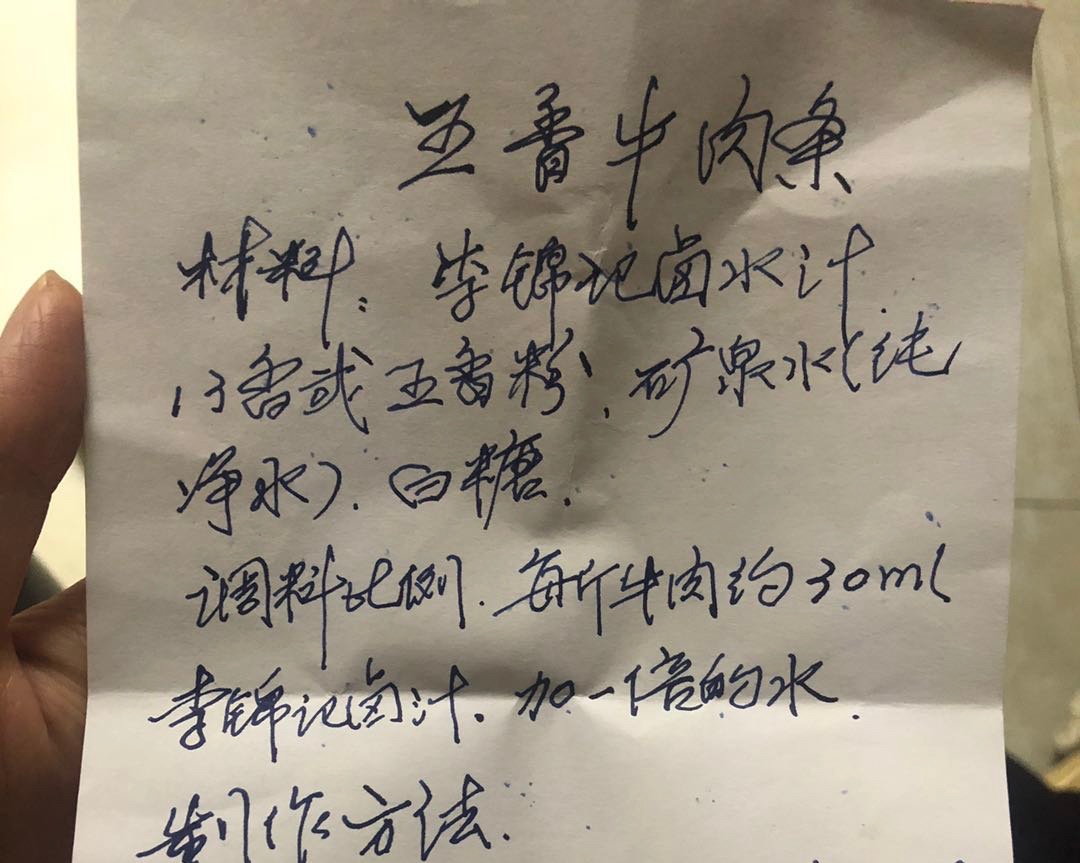 五香牛肉条
材料: 李锦记卤水汁
13香或五香粉、矿泉水(纯
净水)、白糖.
调料比例. 每斤牛肉约30ml
李锦记卤汁、加一倍的水.
制作方法.